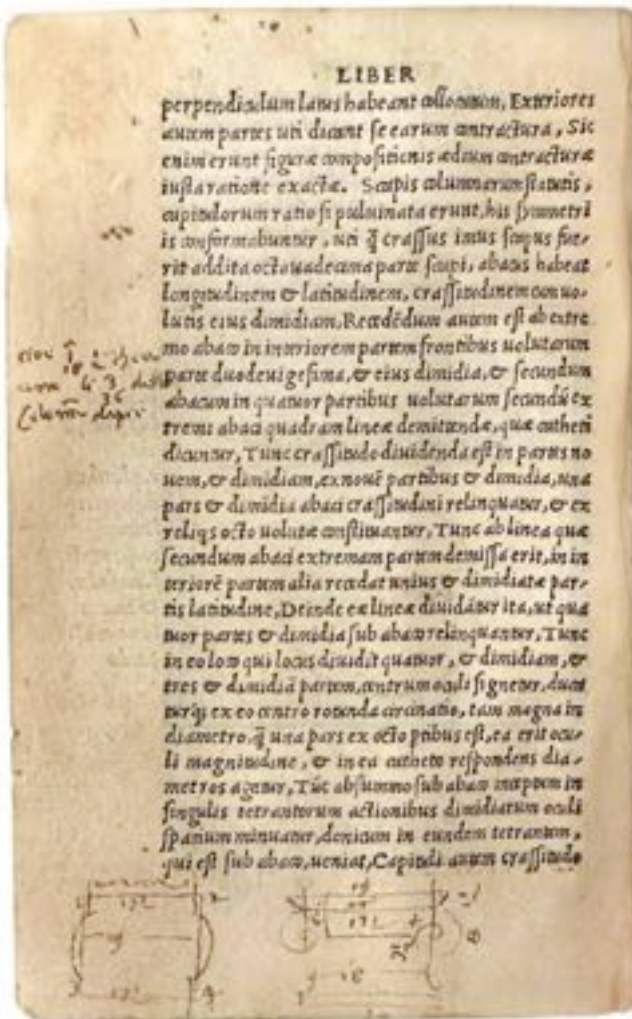 LIBER
perpendiculum latus habeant collocatum, Exteriores
autem partes uti dicant se earum contractura, Sic
enim erunt figuræ compositionis ædium contracturæ
iusta ratione exactæ. Scapis columnarum statutis,
capitulorum ratio si puluinata erunt, his symmetri
is conformabuntur, uti q̃ crassus imus scapus fue-
rit addita octauadecima parte scapi, abacus habeat
longitudinem & latitudinem, crassitudinem cum uo-
lutis eius dimidiam, Recedẽdum autem est ab extre
mo abaco in interiorem partem frontibus uolutarum
parte duodeuigesima, & eius dimidia, & secundum
abacum in quatuor partibus uolutarum secundũ ex
tremi abaci quadram lineæ demittendæ, quæ catheti
dicuntur, Tunc crassitudo diuidenda est in partes no
uem, & dimidiam, ex nouẽ partibus & dimidia, una
pars & dimidia abaci crassitudini relinquatur, & ex
reliqs octo uolutæ constituantur, Tunc ab linea quæ
secundum abaci extremam partem demissa erit, in in
teriorẽ partem alia recedat unius & dimidiatæ par-
tis latitudine, Deinde eæ lineæ diuidãtur ita, ut qua
tuor partes & dimidia sub abaco relinquantur, Tunc
in eo loco qui locus diuidit quatuor, & dimidiam, &
tres & dimidiã partem, centrum oculi signetur, duca
turq; ex eo centro rotunda circinatio, tam magna in
diametro, q̃ una pars ex octo ptibus est, ea erit ocu-
li magnitudine, & in ea catheto respondens dia-
metros agatur, Tũc ab summo sub abaco inceptum in
singulis tetrantorum actionibus dimidiatum oculi
spatium minuatur, donicum in eundem tetrantem,
qui est sub abaco, ueniat, Capituli autem crassitudo